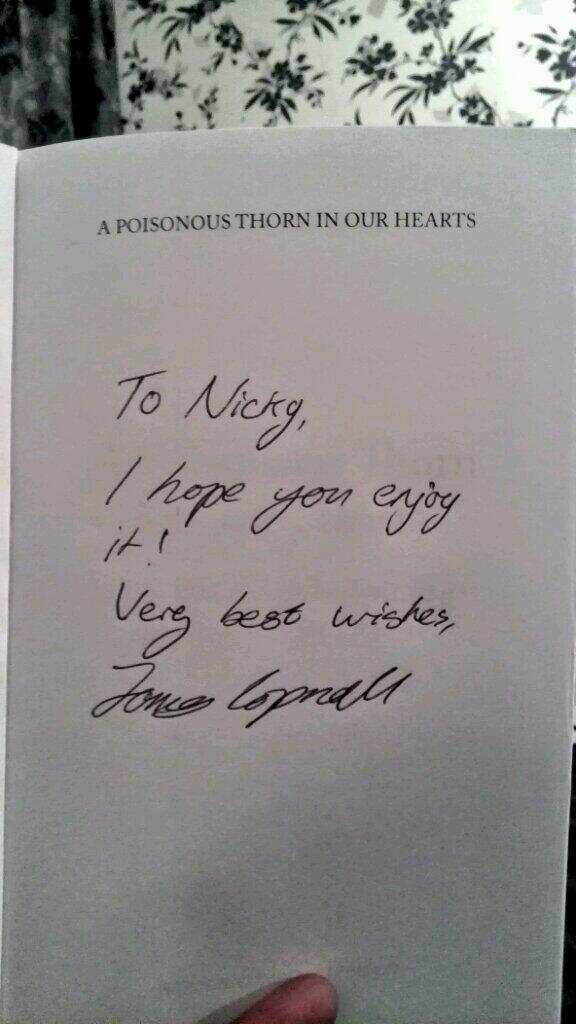 A POISONOUS THORN IN OUR HEARTS
To Nicky,
I hope you enjoy
it!
Very best wishes,
James Copnall